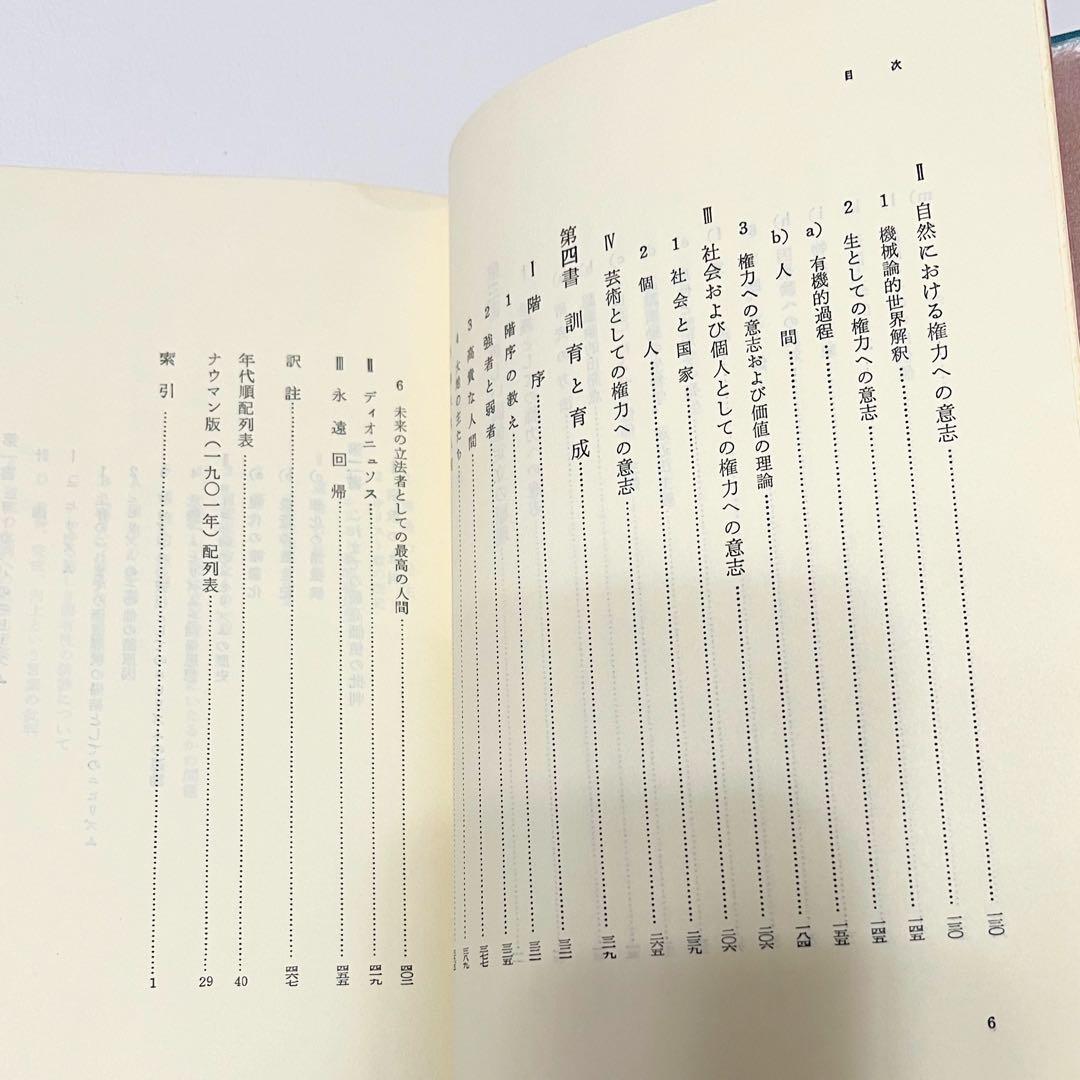 目次
Ⅱ 自然における権力への意志 一三〇
1 機械論的世界解釈 一三〇
2 生としての権力への意志 一四五
a) 有機的過程 一四五
b) 人間 一五五
3 権力への意志および価値の理論 一八四
Ⅲ 社会および個人としての権力への意志 二〇六
1 社会と国家 二〇六
2 個人 二三九
Ⅳ 芸術としての権力への意志 二六五
第四書 訓育と育成 三一九
Ⅰ 階序 三二一
1 階序の教え 三二一
2 強者と弱者 三二五
3 高貴な人間
三八九
6
6 未来の立法者としての最高の人間 四〇二
Ⅱ ディオニュソス 四一九
Ⅲ 永遠回帰 四五五
訳註 四六七
年代順配列表 40
ナウマン版(一九〇一年)配列表 29
索引 1